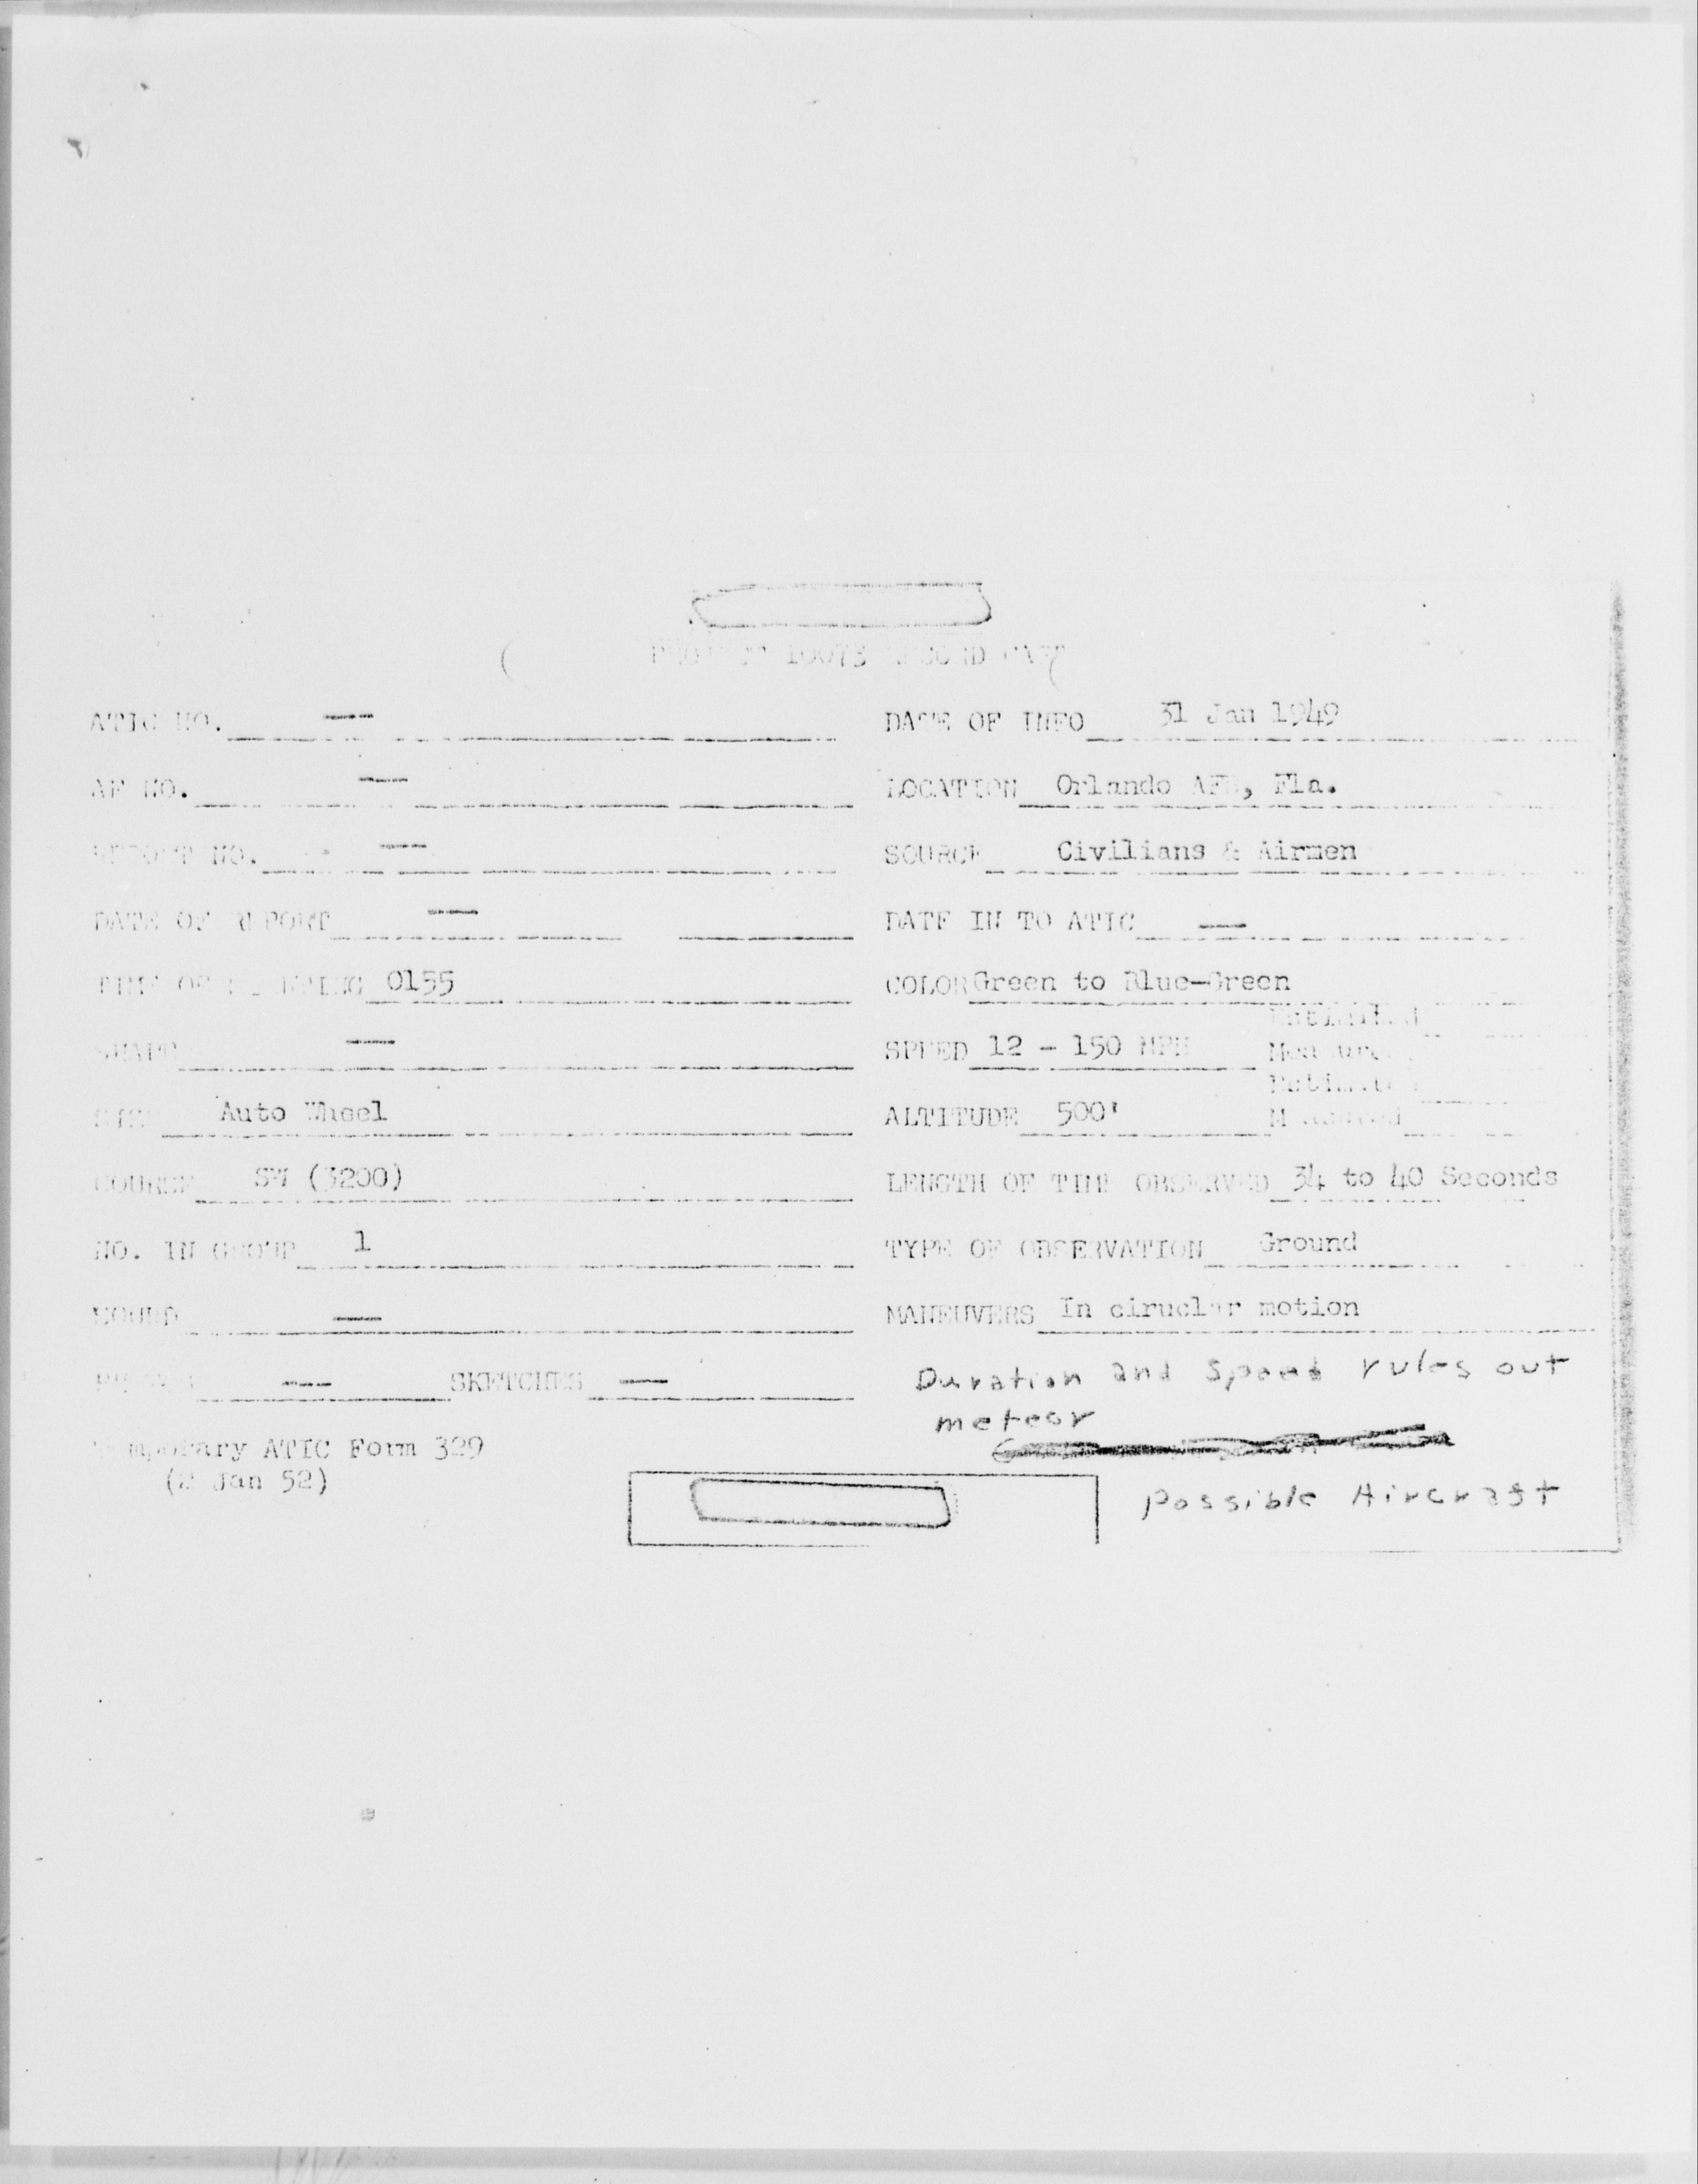 PROJECT 10073 RECORD CARD
ATIC NO. —
DATE OF INFO 31 Jan 1949
AF NO. —
LOCATION Orlando AFB, Fla.
REPORT NO. —
SOURCE Civilians & Airmen
DATE OF REPORT —
DATE IN TO ATIC —
TIME OF SIGHTING 0155
COLOR Green to Blue-Green
SHAPE —
SPEED 12 - 150 MPH
Estimated
Measured
SIZE Auto Wheel
ALTITUDE 500'
Estimated
Measured
COURSE SW (3200)
LENGTH OF TIME OBSERVED 34 to 40 Seconds
NO. IN GROUP 1
TYPE OF OBSERVATION Ground
SOUND —
MANEUVERS In ciruclar motion
PHOTOS — SKETCHES —
Duration and Speed rules out
meteor
Temporary ATIC Form 329
(2 Jan 52)
possible Aircraft